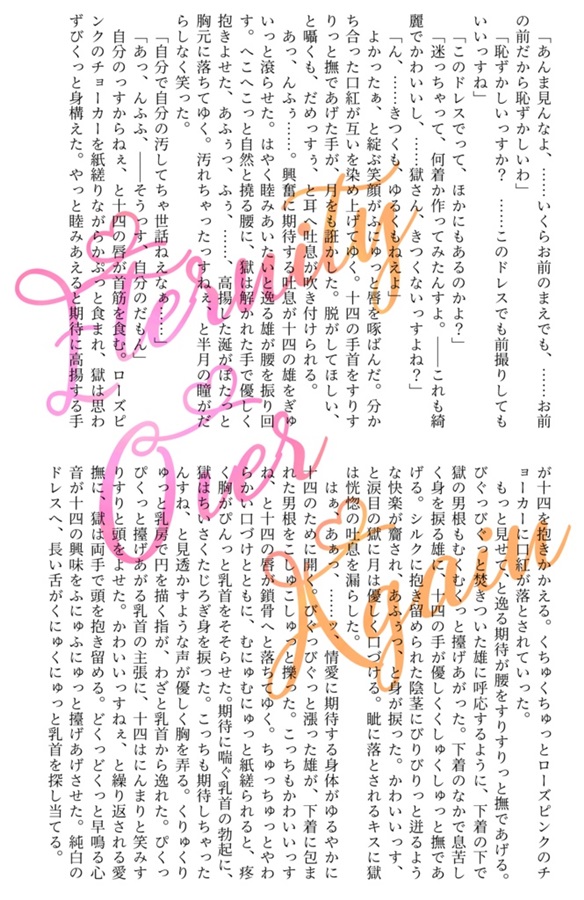 「あんま見んなよ、……いくらお前のまえでも、……お前
の前だから恥ずかしいわ」
「恥ずかしいっすか？　……このドレスでも前撮りしても
いいっすね」
「このドレスでって、ほかにもあるのかよ？」
「迷っちゃって、何着か作ってみたんすよ。――これも綺
麗でかわいいし、……獄さん、きつくないっすよね？」
「ん、……きつくも、ゆるくもねえよ」
よかったぁ、と綻ぶ笑顔がふにゅっと唇を啄ばんだ。分か
ち合った口紅が互いを染め上げてゆく。十四の手首をすりす
りっと撫であげた手が、月をも誑かした。脱がしてほしい、
と囁くも、だめっすぅ、と耳へ吐息が吹き付けられる。
あっ、んふぅ……。興奮に期待する吐息が十四の雄をぎゅ
いっと滾らせた。はやく睦みあいたいと逸る雄が腰を振り回
す。へこへこっと自然と撓る腰に、獄は解かれた手で優しく
抱きよせた、あふぅっ、ふぅ、……、高揚した涎がぼたっと
胸元に落ちてゆく。汚れちゃったっすねぇ、と半月の瞳がだ
らしなく笑った。
「自分で自分の汚してちゃ世話ねえなぁ……」
「あっ、んふふ、――そうっす、自分のだもん」
自分のっすからねぇ、と十四の唇が首筋を食む。ローズピ
ンクのチョーカーを紙縒りながらかぷっと食まれ、獄は思わ
ずびくっと身構えた。やっと睦みあえると期待に高揚する手
が十四を抱きかかえる。くちゅくちゅっとローズピンクのチ
ョーカーに口紅が落とされていった。
もっと見せてと逸る期待が腰をすりすりっと撫であげる。
びぐっびぐっと焚きついた雄に呼応するように、下着の下で
獄の男根もむくむくっと擡げあがった。下着のなかで息苦し
く身を捩る雄に、十四の手が優しくくしゅくしゅっと撫であ
げる。シルクに抱き留められた陰茎にびりびりっと迸るよう
な快楽が齎され、あふぅっ、と身が捩った。かわいいっす、
と涙目の獄に月は優しく口づける。眦に落とされるキスに獄
は恍惚の吐息を漏らした。
はぁ、あぁっ、……ッ、情愛に期待する身体がゆるやかに
十四のために開く。びぐっびぐっと漲った雄が、下着に包ま
れた男根をこしゅこしゅっと擽った。こっちもかわいいっす
ね、と十四の唇が鎖骨へと落ちてゆく。ちゅっちゅっとやわ
らかい口づけとともに、むにゅむにゅっと紙縒られると、疼
く胸がぴんっと乳首をそそらせた。期待に喘ぐ乳首の勃起に、
獄はちいさくたじろぎ身を捩った。こっちも期待しちゃった
んすね、と見透かすような声が優しく胸を弄る。くりゅくり
ゅっと乳房で円を描く指が、わざと乳首から逸れた。ぴくっ
ぴくっと擡げあがる乳首の主張に、十四はにんまりと笑みす
りすりと頭をよせた。かわいいっすねぇ、と繰り返される愛
撫に、獄は両手で頭を抱き留める。どくっどくっと早鳴る心
音が十四の興味をふにゅふにゅっと擡げあげさせた。純白の
ドレスへ、長い舌がくにゅくにゅっと乳首を探し当てる。
Eternity
Over
Again